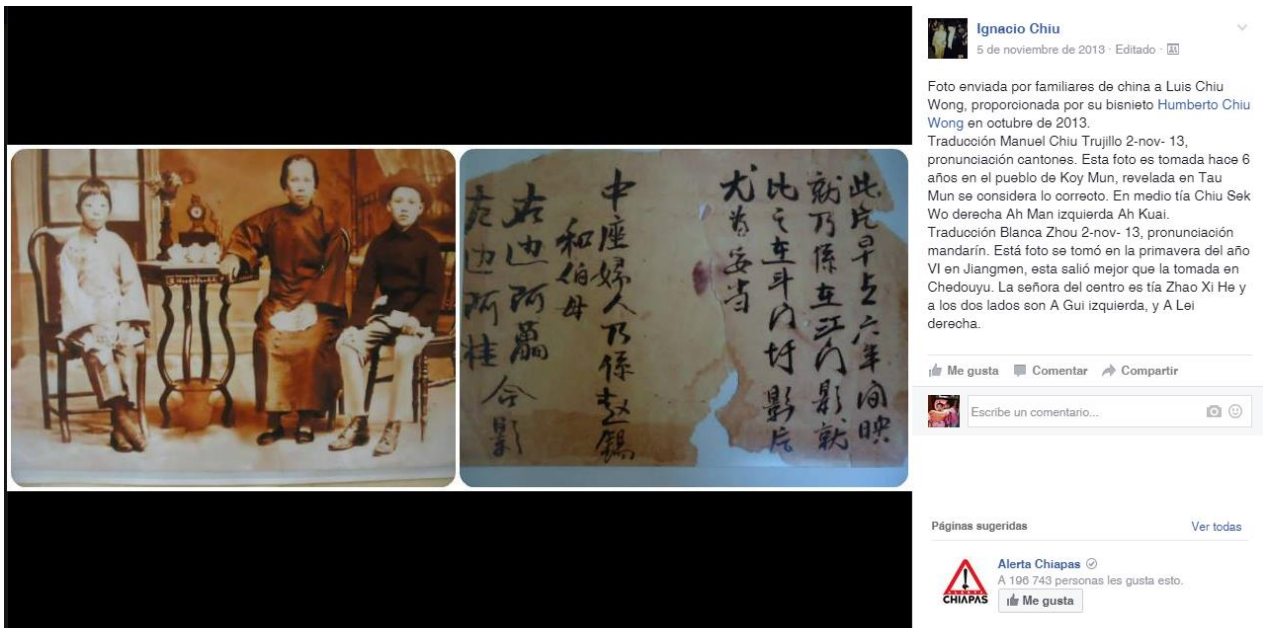 此片早六年间映
就乃係在江门影就
比之在斗门圩影片
尤为妥当
中座婦人乃係赵錫
和伯母
右边阿
左边阿桂
合影
Ignacio Chiu
5 de noviembre de 2013 · Editado ·
Foto enviada por familiares de china a Luis Chiu
Wong, proporcionada por su bisnieto Humberto Chiu
Wong en octubre de 2013.
Traducción Manuel Chiu Trujillo 2-nov- 13,
pronunciación cantones. Esta foto es tomada hace 6
años en el pueblo de Koy Mun, revelada en Tau
Mun se considera lo correcto. En medio tía Chiu Sek
Wo derecha Ah Man izquierda Ah Kuai.
Traducción Blanca Zhou 2-nov- 13, pronunciación
mandarín. Está foto se tomó en la primavera del año
VI en Jiangmen, esta salió mejor que la tomada en
Chedouyu. La señora del centro es tía Zhao Xi He y
a los dos lados son A Gui izquierda, y A Lei
derecha.
Me gusta Comentar Compartir
Escribe un comentario...
Páginas sugeridas Ver todas
ALERTA
CHIAPAS
Alerta Chiapas
A 196 743 personas les gusta esto.
Me gusta